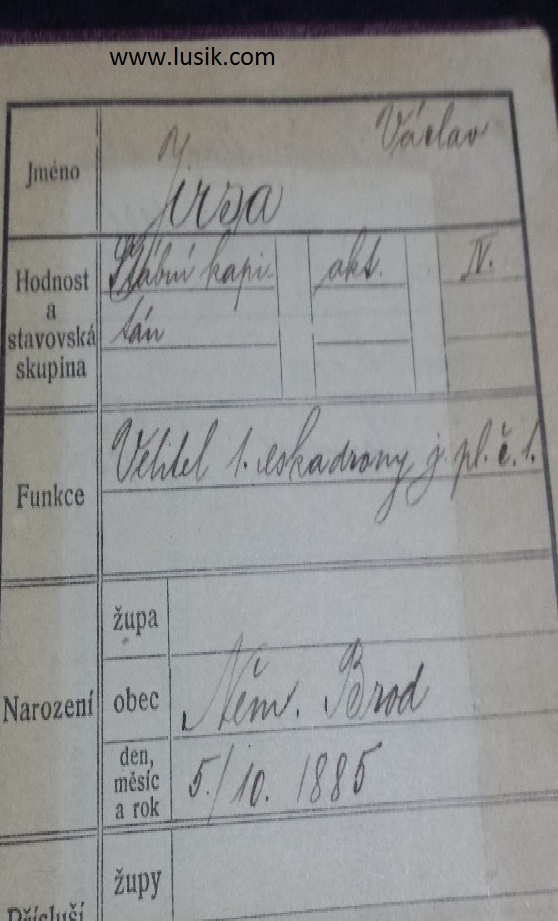 www.lusik.com
Jméno Jirsa Václav
Hodnost a stavovská skupina Štábní kapi- akt. IV.
tán
Funkce Velitel 1. eskadrony j. pl. č. 1.
Narození župa
obec Něm. Brod
den, měsíc a rok 5./10. 1885
Přísluší župy